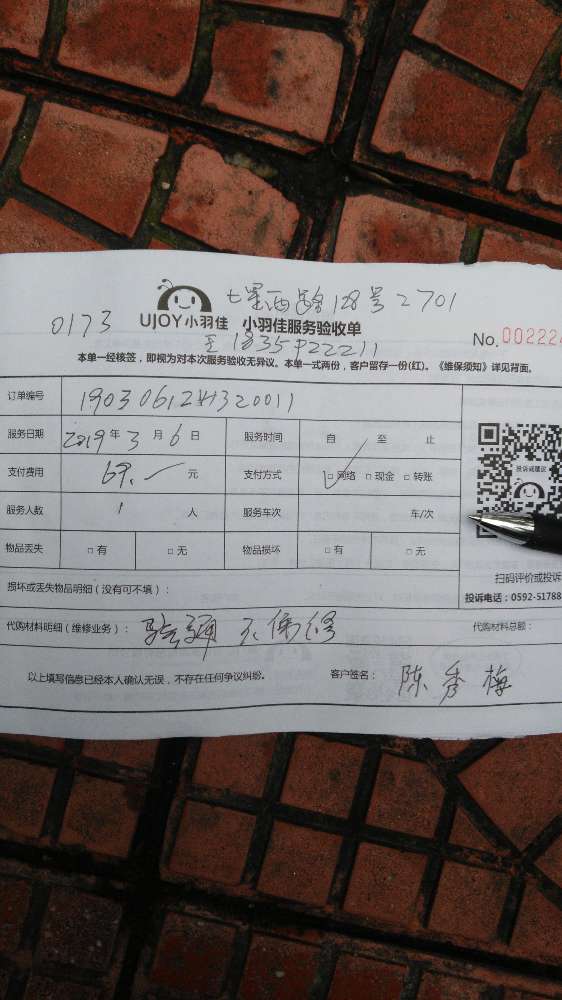 七星西路128号2701
0173
UJOY小羽佳 小羽佳服务验收单
No. 002224
至1835P22211
本单一经核签，即视为对本次服务验收无异议。本单一式两份，客户留存一份(红)。《维保须知》详见背面。
订单编号
服务日期 2019年3月6日 服务时间 自 至 止
支付费用 69. 元 支付方式 □网络 □现金 □转账
服务人数 1 人 服务车次 车/次
物品丢失 □有 □无 物品损坏 □有 □无
投诉或建议
扫码评价或投诉
投诉电话：0592-51788
损坏或丢失物品明细（没有可不填）：
代购材料明细（维修业务）： 验通 不保修 代购材料总额：
以上填写信息已经本人确认无误，不存在任何争议纠纷。 客户签名： 陈秀梅